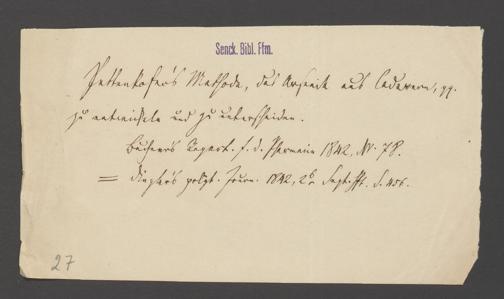 Senck. Bibl. Ffm.
Pettenkofer's Methode, das Arsenik aus Cadavern, pp.
zu entwickeln und zu unterscheiden.
Buchner's Repert. f. d. Pharmacie 1842, Nr. 78.
= Dingler's polyt. Journ. 1842, 2s Septhft. S. 456.
27